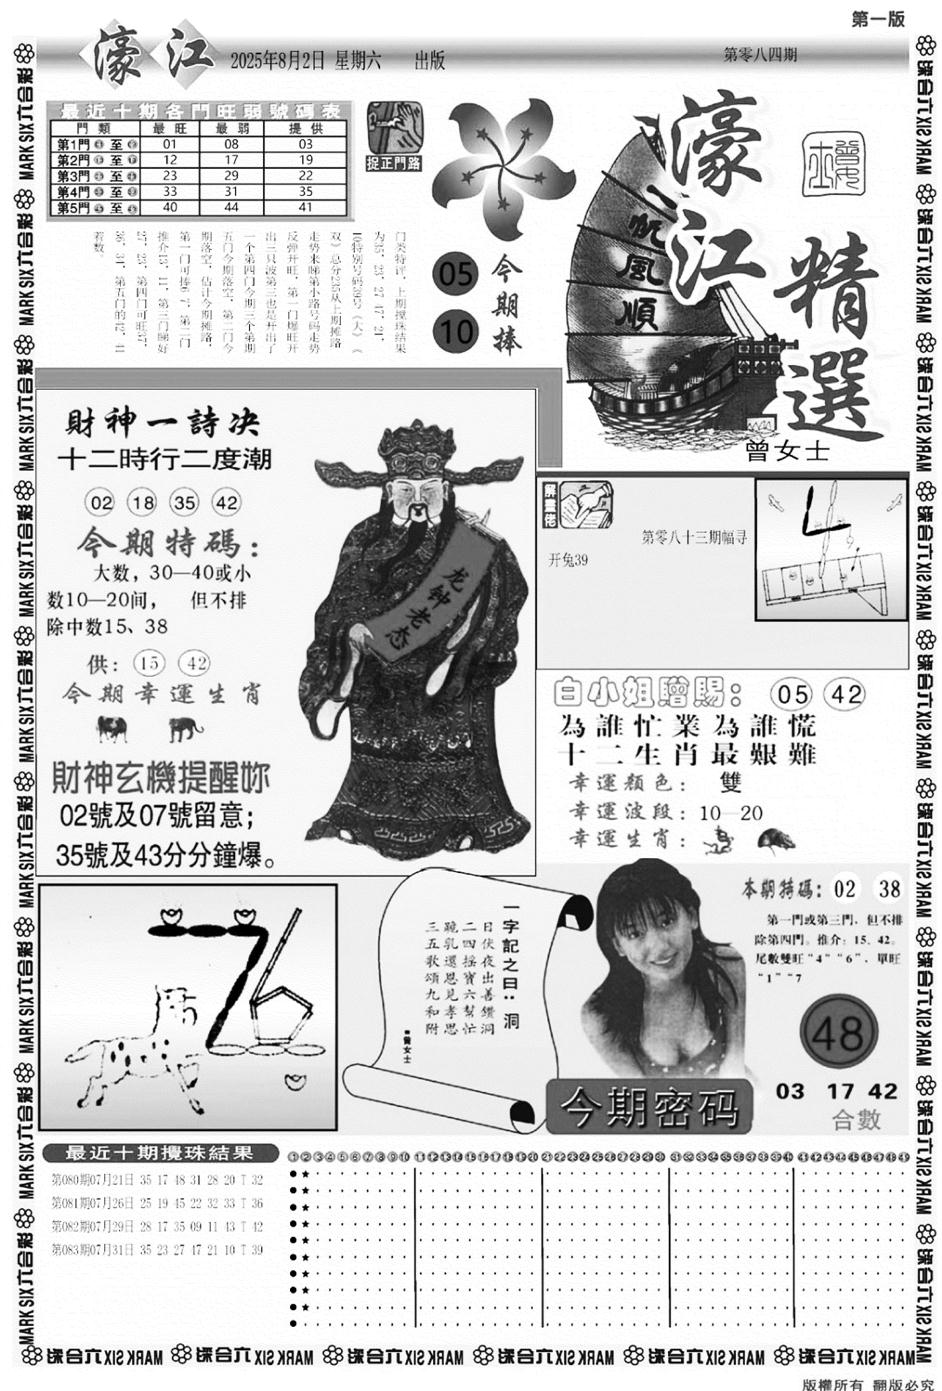 第一版
濠江
2025年8月2日 星期六 出版
第零八四期
最近十期各門旺弱號碼表
門類 最旺 最弱 提供
第1門 至 01 08 03
第2門 至 12 17 19
第3門 至 23 29 22
第4門 至 33 31 35
第5門 至 40 44 41
捉正門路
门类特评，上期搅珠结果
为35、23、27、47、21、
10特别号码39号《大》《
双》总分235从上期摊路
走势来睇第小路号码走势
反弹开旺，第一门爆旺开
出三只波第三也是开出了
一个第四门今期三个第期
五门今期落空，第二门今
期落空，估计今期摊路，
第一门可捧6、7，第二门
推介13、11，第三门睇好
27、23，第四门可旺37、
36、31，第五门的42、41
若数。
05
10
今期捧
濠江
精選
一帆風順
曾女士
財神一詩決
十二時行二度潮
02 18 35 42
今期特碼：
大数，30—40或小
数10—20间， 但不排
除中数15、38
供：15 42
今期幸運生肖
財神玄機提醒妳
02號及07號留意；
35號及43分分鐘爆。
龙钟老态
解畫佬
第零八十三期幅寻
开兔39
白小姐贈賜：05 42
為誰忙業為誰慌
十二生肖最艱難
幸運顏色： 雙
幸運波段：10—20
幸運生肖：
一字記之曰：洞
日伏夜出善鑽洞
二四摇寶六幫忙
跪乳還恩見孝思
三五歌頌九和附
■曾女士
本期特碼：02 38
第一門或第三門，但不排
除第四門。推介：15、42。
尾數雙旺“4”“6”，單旺
“1”“7
48
03 17 42
合數
今期密码
最近十期攪珠結果
第080期07月21日 35 17 48 31 28 20 T 32
第081期07月26日 25 19 45 22 32 33 T 36
第082期07月29日 28 17 35 09 11 43 T 42
第083期07月31日 35 23 27 47 21 10 T 39
①②③④⑤⑥⑦⑧⑨⑩⑪⑫⑬⑭⑮⑯⑰⑱⑲⑳㉑㉒㉓㉔㉕㉖㉗㉘㉙㉚㉛㉜㉝㉞㉟㊱㊲㊳㊴㊵㊶㊷㊸㊹㊺㊻㊼㊽㊾
六合彩 MARK SIX
版權所有 翻版必究